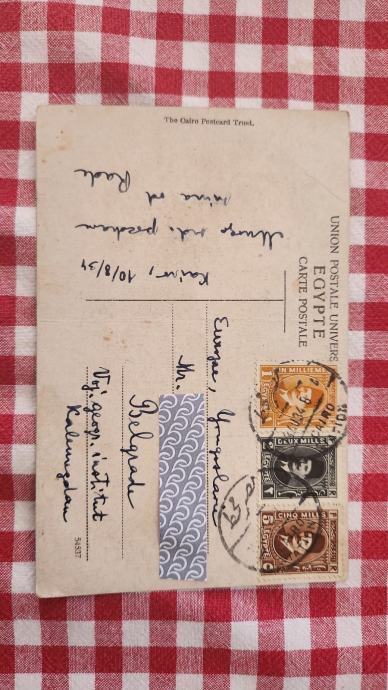 The Cairo Postcard Trust.
UNION POSTALE UNIVERS
EGYPTE
CARTE POSTALE
Kairo, 10/8/34
Mnogo srd. pozdrava
svima od
Rade
Europe, Yougoslavie
Mr.
Belgrade
Voj. geogr. institut
Kalemegdan
54537
UN MILLIEME
DEUX MILLS
CINQ MILLS